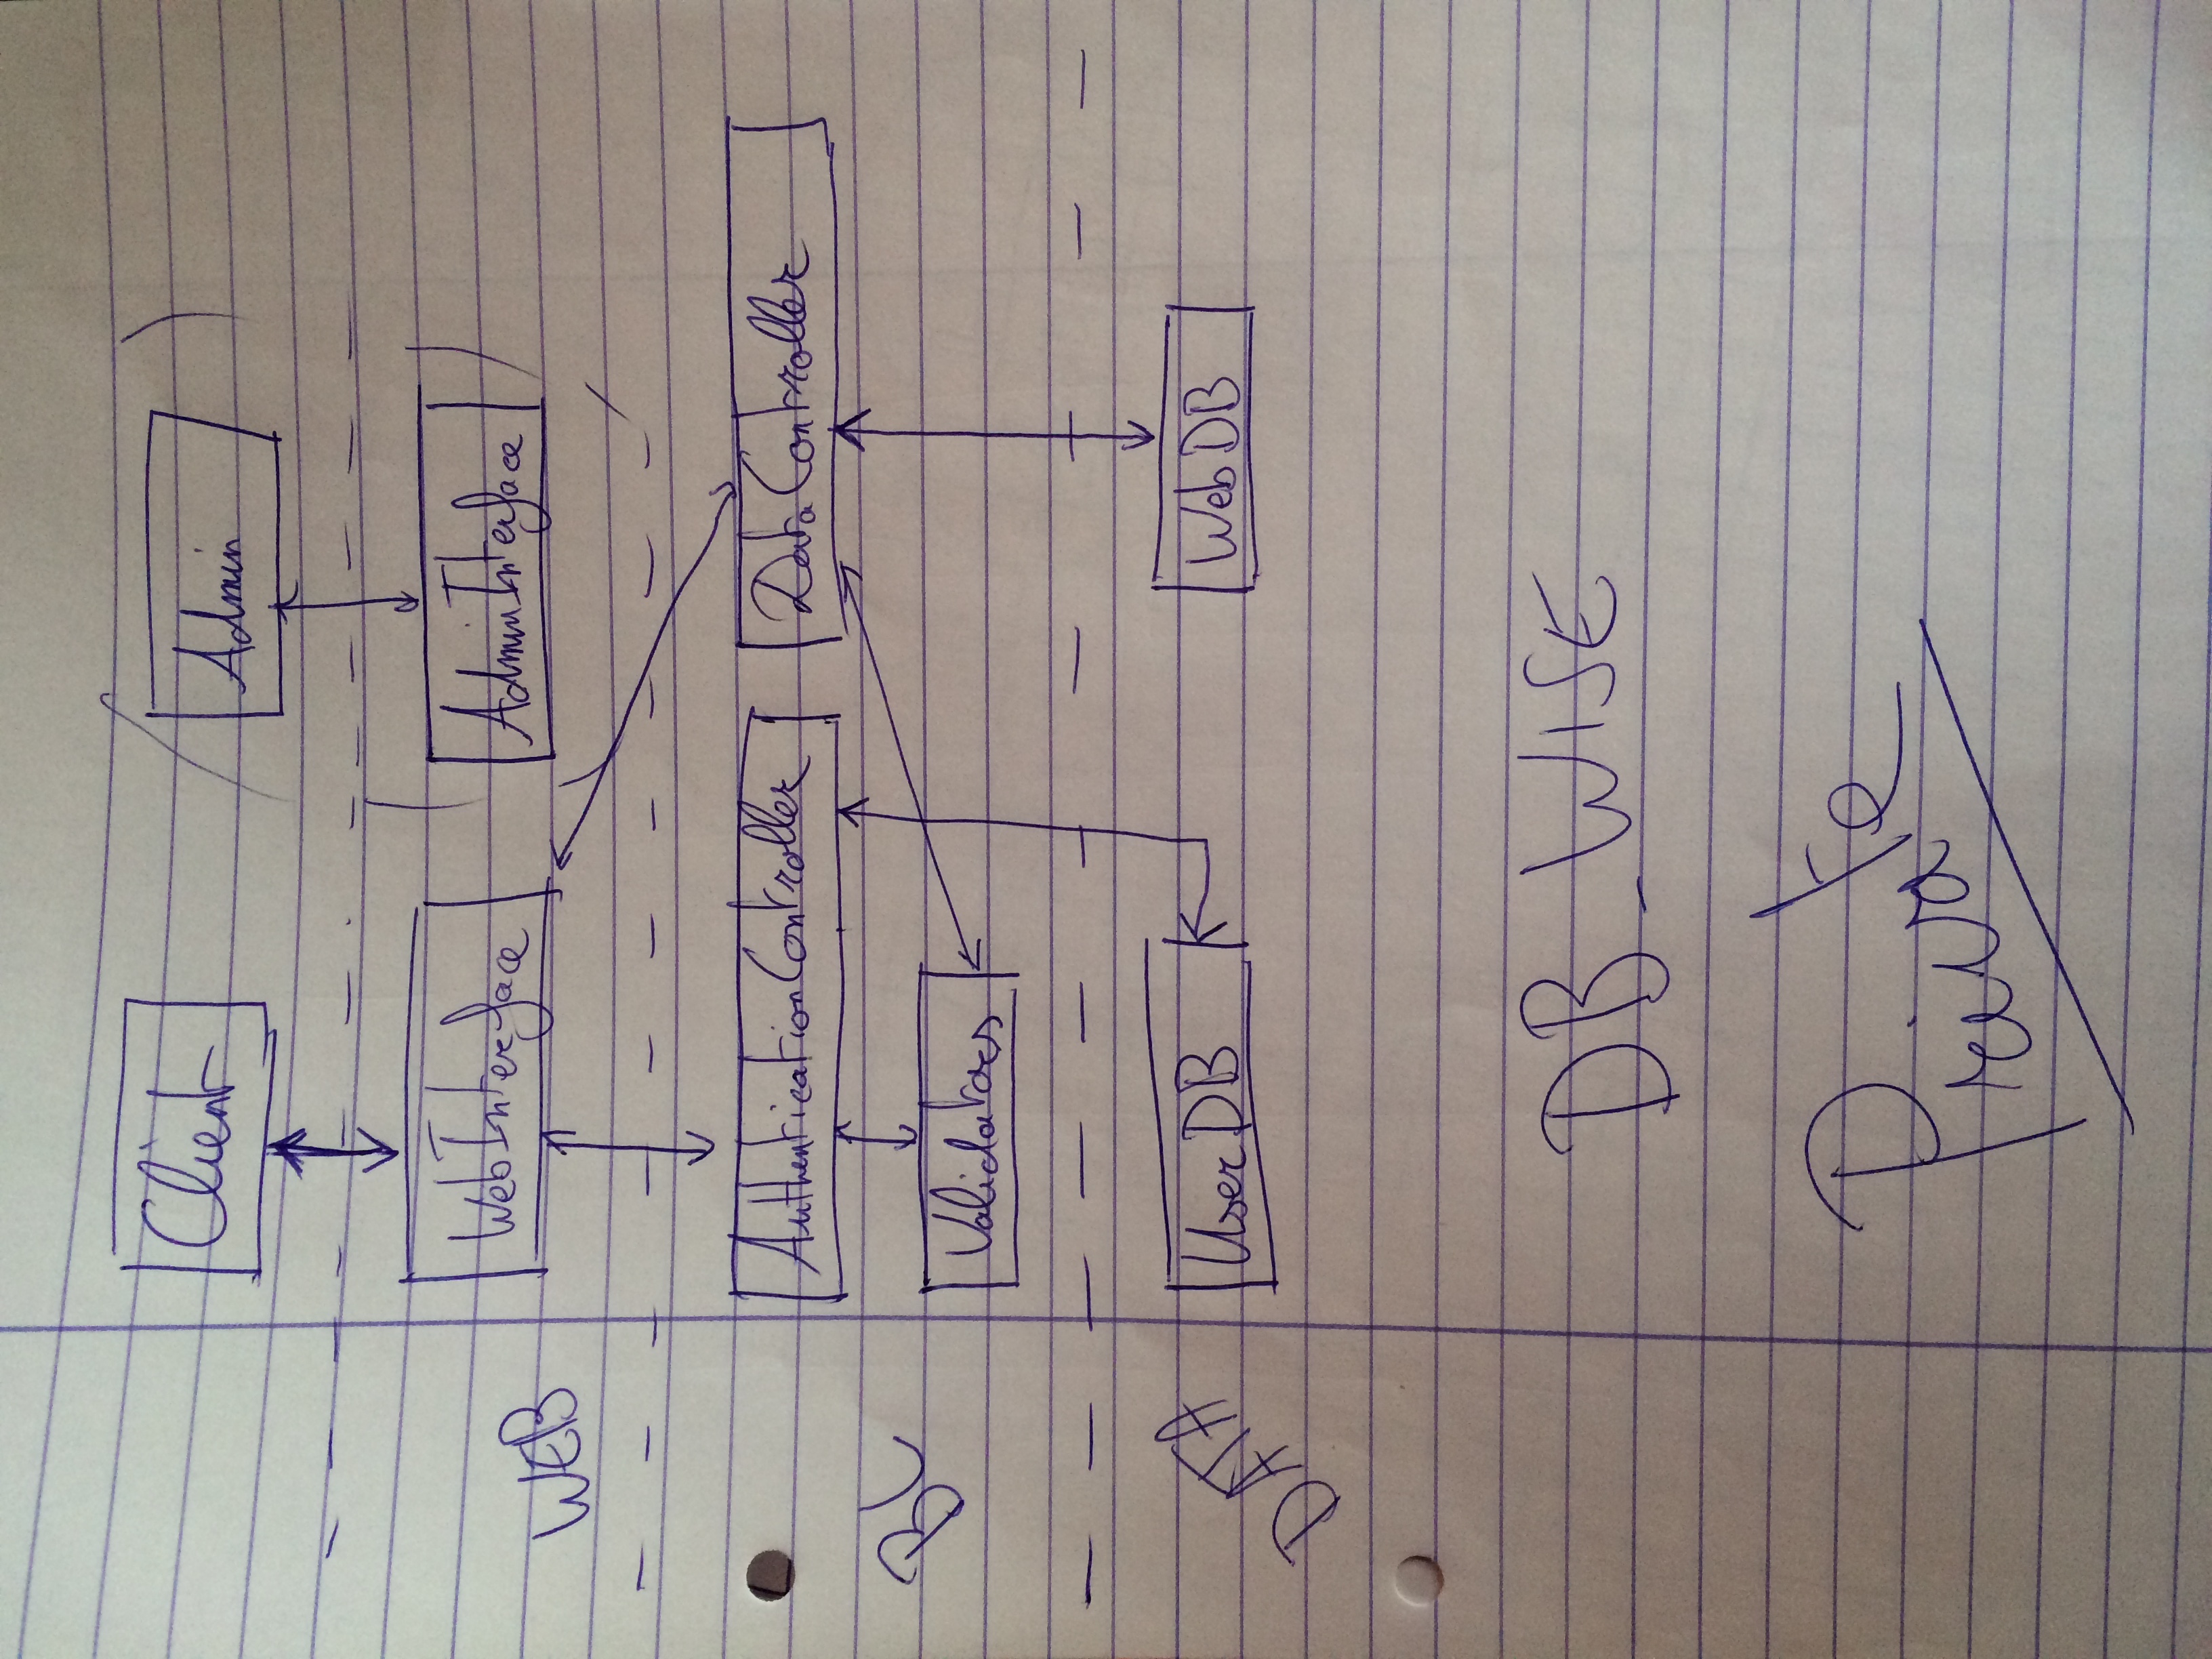 Client
Admin
WebInterface
AdminInterface
WEB
AuthenticationController
DataController
Validators
BL
UserDB
WebDB
DATA
DB_WISE
Private